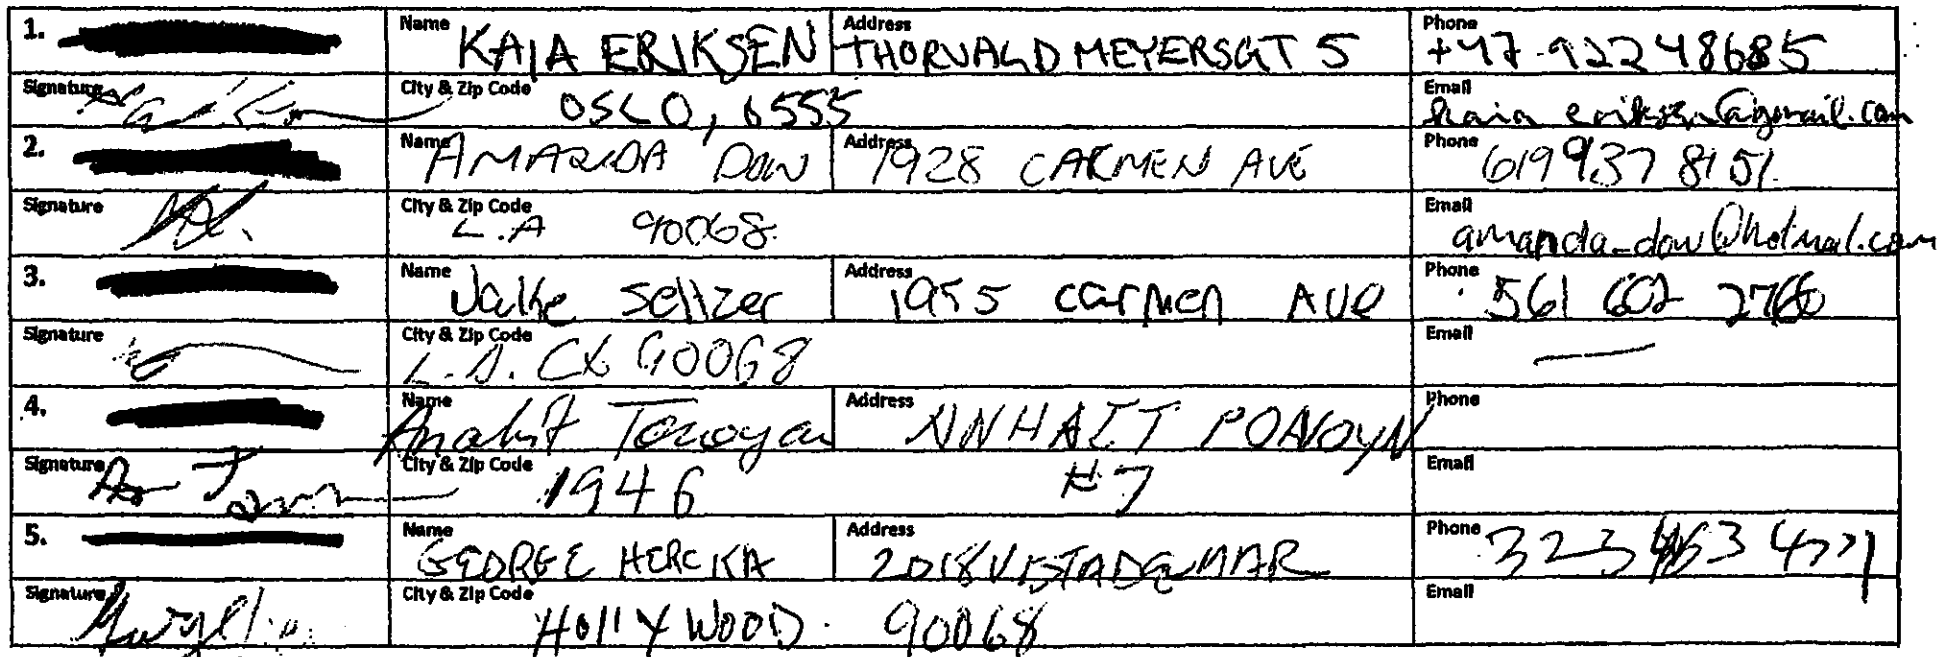 1. Name KAIA ERIKSEN Address THORVALD MEYERSGT 5 Phone +47 92248685
Signature City & Zip Code OSLO, 0555 Email kaia eriksen@gmail.com
2. Name AMANDA DOW Address 1928 CARMEN AVE Phone 619 937 8151
Signature City & Zip Code L.A 90068 Email amanda_dow@hotmail.com
3. Name Seltzer Address 1955 Carmen Ave Phone 561 602 2766
Signature City & Zip Code L.A. CA 90068 Email —
4. Name Anahit Address Phone
Signature City & Zip Code 1946 #7 Email
5. Name GEORGE HERCKA Address 2018 VISTA DEL MAR Phone 323 463
Signature City & Zip Code HOllYWOOD 90068 Email